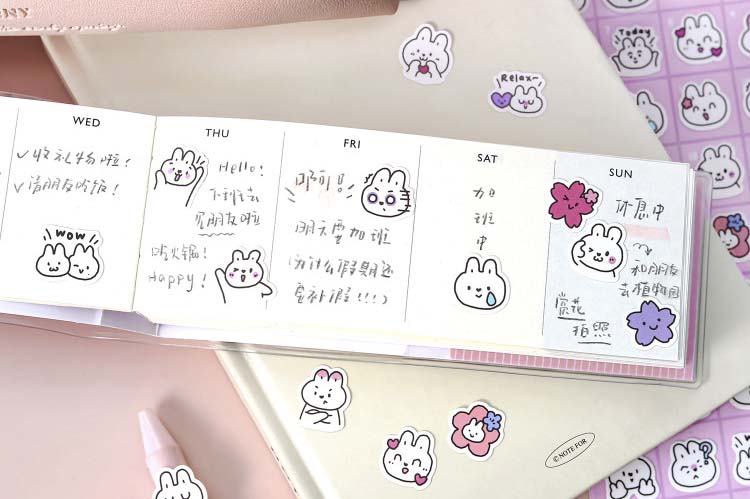 Today
Relax~
WED
✓收礼物啦!
✓请朋友吃饭!
WOW
THU
Hello!
下班去
见朋友啦
吃火锅!
Happy!
FRI
啊啊!
明天要加班
为什么假期还
要补假!!!
SAT
加
班
中
SUN
休息中
和朋友
去植物园
赏花
拍照
© NOTE FOR